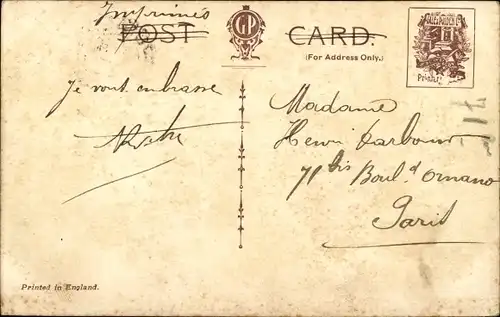 Imprimés
POST CARD.
(For Address Only.)
Je vous embrasse
Madame
Henri
71 bis Boul.d Ornano
Paris
Printed in England.